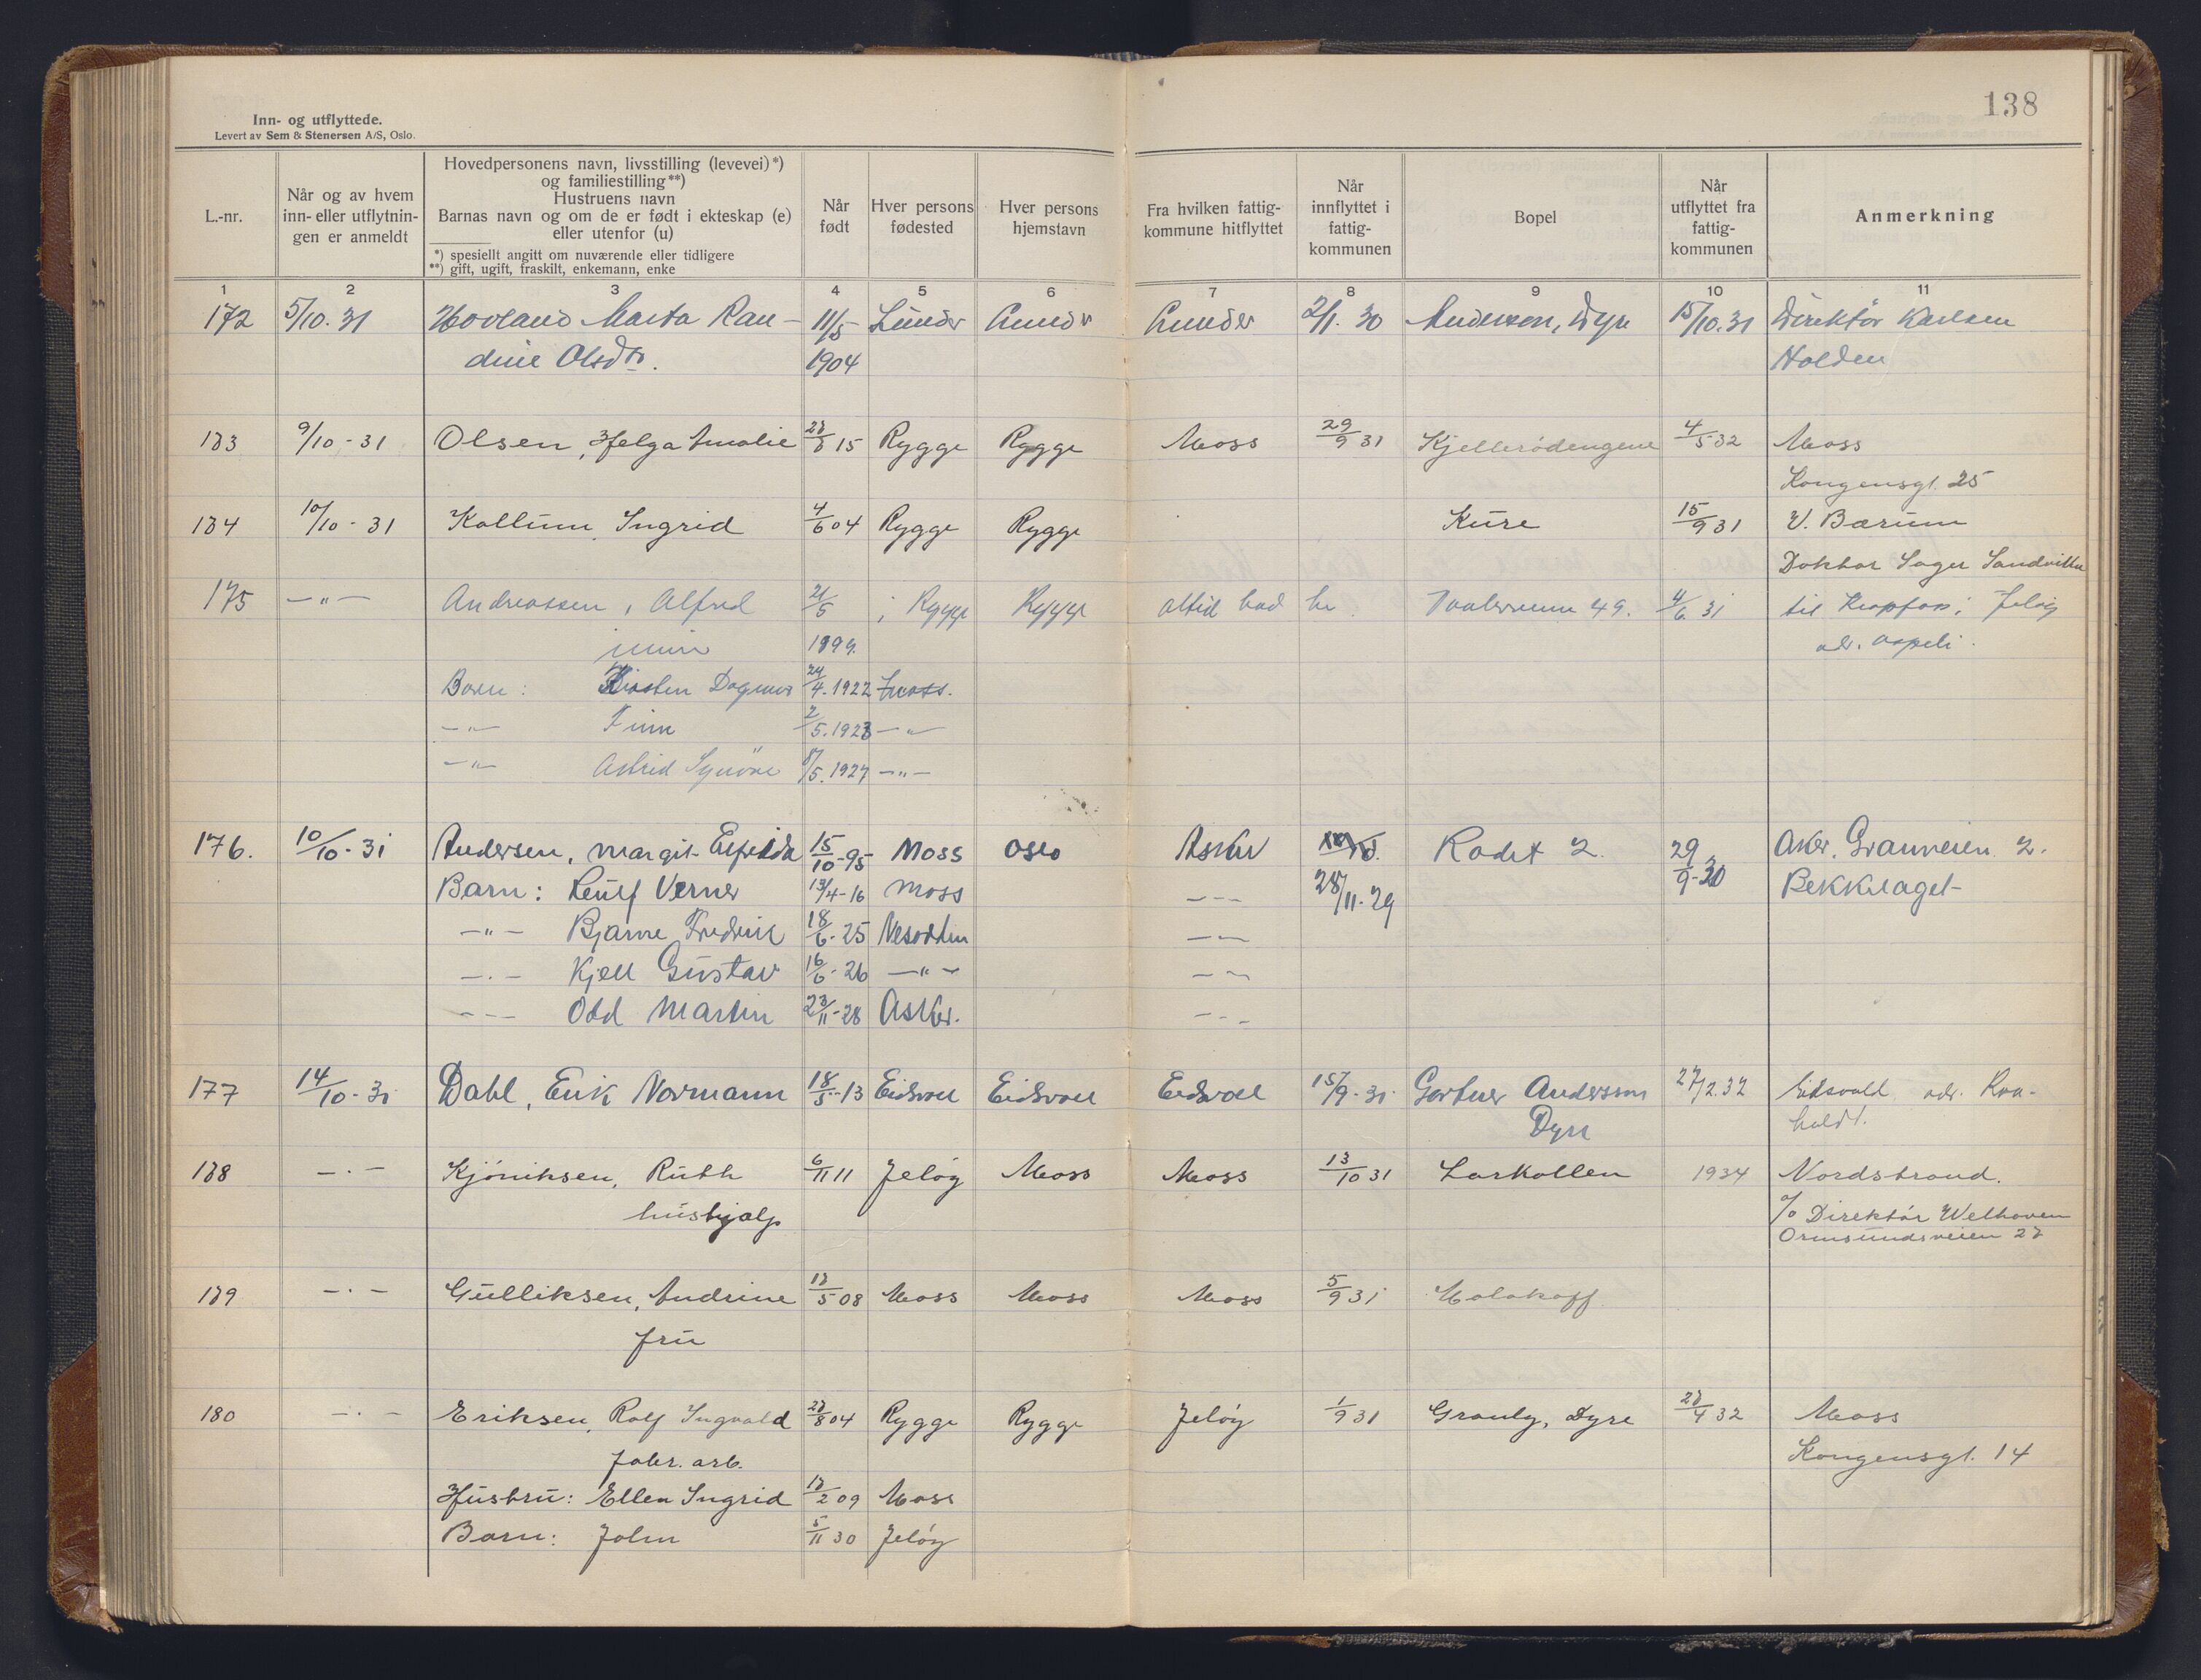 138
Inn- og utflyttede.
Levert av Sem & Stenersen A/S, Oslo.
L.-nr.
Når og av hvem inn- eller utflytnin-gen er anmeldt
Hovedpersonens navn, livsstilling (levevei)*)
og familiestilling**)
Hustruens navn
Barnas navn og om de er født i ekteskap (e)
eller utenfor (u)
*) spesiellt angitt om nuværende eller tidligere
**) gift, ugift, fraskilt, enkemann, enke
Når født
Hver persons fødested
Hver persons hjemstavn
Fra hvilken fattig-kommune hitflyttet
Når innflyttet i fattig-kommunen
Bopel
Når utflyttet fra fattig-kommunen
Anmerkning
1 2 3 4 5 6 7 8 9 10 11
172 5/10.31 Hovland Marta Ran- 11/5 Lunder 2/1.30 Andersen, Dyre 15/10.31 Direktør Karlsen
dine Olsdtr. 1904 Halden
173 9/10-31 Olsen, Helga Amalie 27/7 15 Rygge Rygge Moss 29/9 31 Kjellerødengene 4/5 32 Moss
Kongensgt. 25
174 10/10-31 Kollum, Ingrid 4/6 04 Rygge Rygge Kure 15/9 31 V. Bærum
Doktor Sandvika
175 -"- Andreassen, Alfred 21/5 i Rygge Rygge altid bod her 49. 4/6 31 til i Jeløy
1899. adr. Aspeli.
Barn: Kirsten Dagmar 24/4.1922 Moss.
-"- Finn 2/5.1923 -"-
-"- Astrid Synøve 8/5.1927 -"-
176. 10/10-31 Andersen, Margit 15/10-95 Moss Oslo Asker Rodet 2. 29/9-30 Aker. Granveien 2.
Barn: Leulf Verner 13/4-16 Moss --- 28/11-29 Bekkelaget
-"- Bjarne Fredrik 18/6-25 Nesodden ---
-"- Kjell Gustav 16/6-26 -"- ---
--- Odd Martin 23/11-28 Asker. ---
177 14/10-31 Dahl, Erik Normann 18/5-13 Eidsvoll Eidsvoll Eidsvoll 15/9-31 Gartner Anderson 27/2.32 Eidsvold adr. Raa-
Dyre holdt.
178 -"- Kjøniksen, Ruth 6/11 11 Jeløy Moss Moss 13/10 31 Larkollen 1934 Nordstrand.
hushjælp c/o Direktør Welhaven
Ormsundsveien 27
179 -"- Gulliksen, Andrine 17/5 08 Moss Moss Moss 5/9 31 Malakoff.
fru
180 -"- Eriksen, Rolf Ingvald 27/8 04 Rygge Rygge Jeløy 1/9 31 Granly, Dyre 27/4 32 Moss
fabr. arb. Kongensgt. 14
Hustru: Ellen Ingrid 17/2 09 Moss
Barn: John 5/11 30 Jeløy